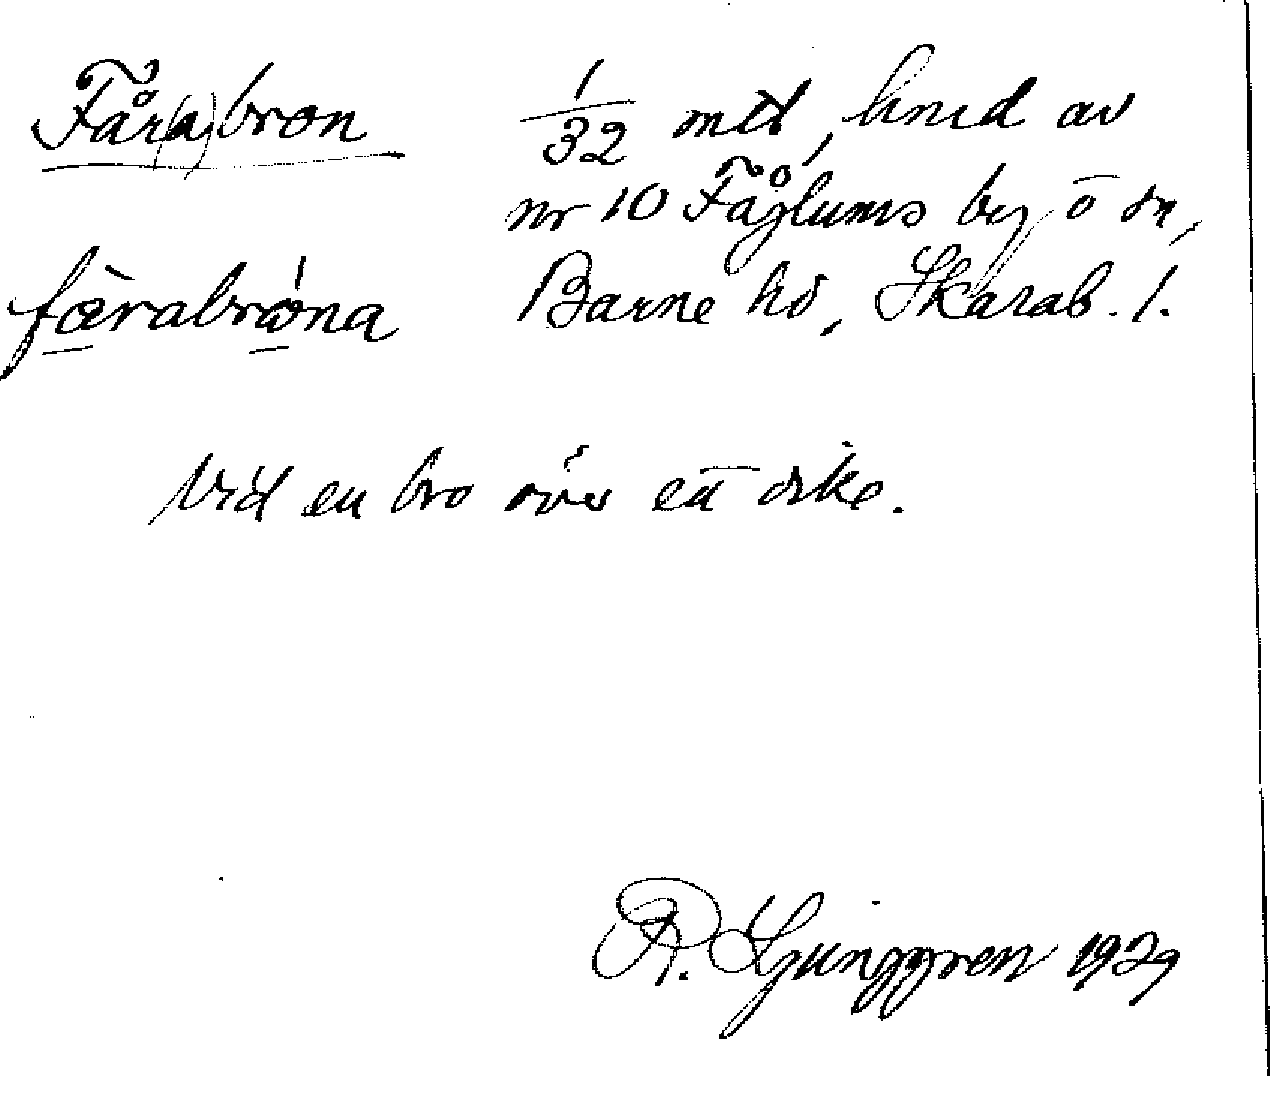 Får(a)bron
1/32 mtl, hmd av
nr 10 Fåglums by o sn,
fǣrabrǿna
Barne hd, Skarab. l.
Vid en bro över ett dike.
R. Ljunggren 1929